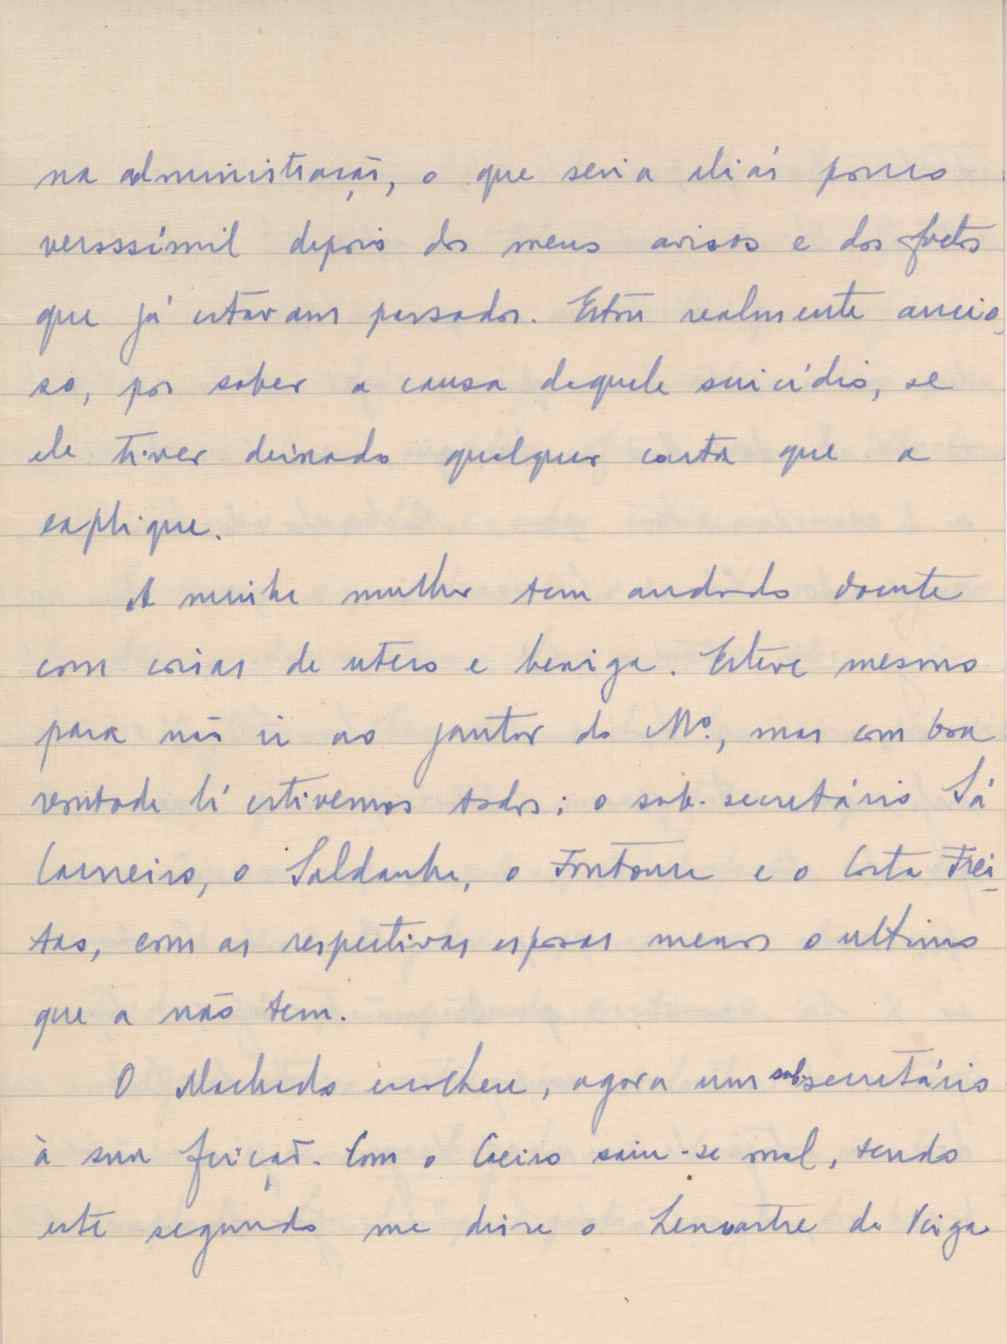 na administração, o que seria aliás pouco
verossímil depois dos meus avisos e dos factos
que já estavam passados. Estou realmente ancio
so, por saber a causa daquele suicídio, se
ele tiver deixado qualquer carta que a
explique.
A minha mulher tem andado doente
com coisas de utero e bexiga. Esteve mesmo
para não ir ao jantar do Mº., mas com boa
vontade lá estivemos todos: o sub-secretário Sá
Carneiro, o Saldanha, o Fontoura e o Costa Frei
tas, com as respectivas esposas menos o ultimo
que a não tem.
O Machado escolheu, agora um sub-secretário
à sua feição. Com o Caeiro saiu-se mal, tendo
este segundo me disse o Lencastre da Veiga